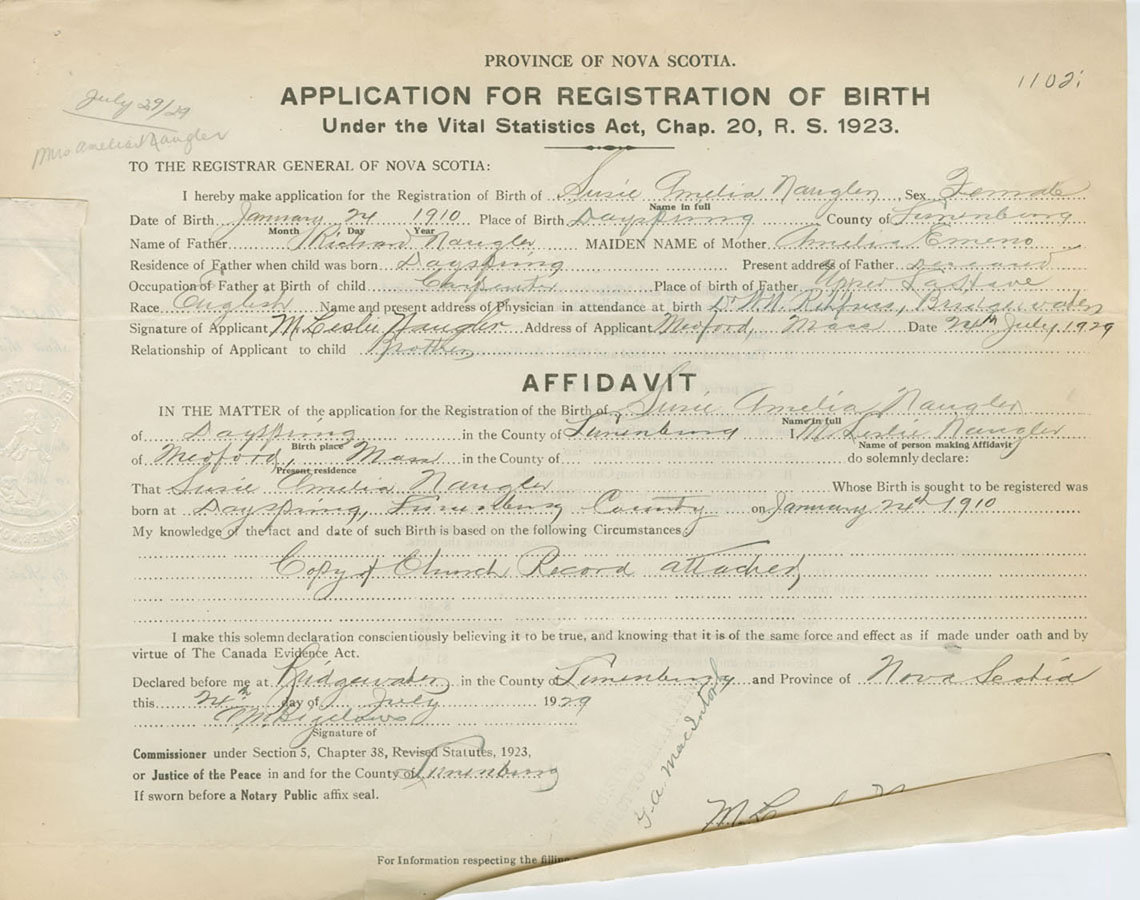 PROVINCE OF NOVA SCOTIA.
1102
July 29/29
Mrs Amelia Naugler
APPLICATION FOR REGISTRATION OF BIRTH
Under the Vital Statistics Act, Chap. 20, R. S. 1923.
TO THE REGISTRAR GENERAL OF NOVA SCOTIA:
I hereby make application for the Registration of Birth of Susie Amelia Naugler Sex Female
Name in full
Date of Birth January 24 1910 Place of Birth Dayspring County of Lunenburg
Month Day Year
Name of Father Naugler MAIDEN NAME of Mother Amelia Emeno
Residence of Father when child was born Dayspring Present address of Father deceased
Occupation of Father at Birth of child Carpenter Place of birth of Father Upper LaHave
Race English Name and present address of Physician in attendance at birth Dr Bridgewater
Signature of Applicant M Leslie Naugler Address of Applicant Medford, Mass Date 24th July, 1929
Relationship of Applicant to child Brother
AFFIDAVIT
IN THE MATTER of the application for the Registration of the Birth of Susie Amelia Naugler
Name in full
of Dayspring in the County of Lunenburg I M Leslie Naugler
Birth place Name of person making Affidavit
of Medford, Mass in the County of do solemnly declare:
Present residence
That Susie Amelia Naugler Whose Birth is sought to be registered was
born at Dayspring, Lunenburg County on January 24th 1910
My knowledge of the fact and date of such Birth is based on the following Circumstances;
Copy of Church Record attached,
I make this solemn declaration conscientiously believing it to be true, and knowing that it is of the same force and effect as if made under oath and by
virtue of The Canada Evidence Act.
Declared before me at Bridgewater in the County of Lunenburg and Province of Nova Scotia
this 24th day of July 1929
Signature of
Commissioner under Section 5, Chapter 38, Revised Statutes, 1923,
or Justice of the Peace in and for the County of Lunenburg
If sworn before a Notary Public affix seal.
For Information respecting the filling